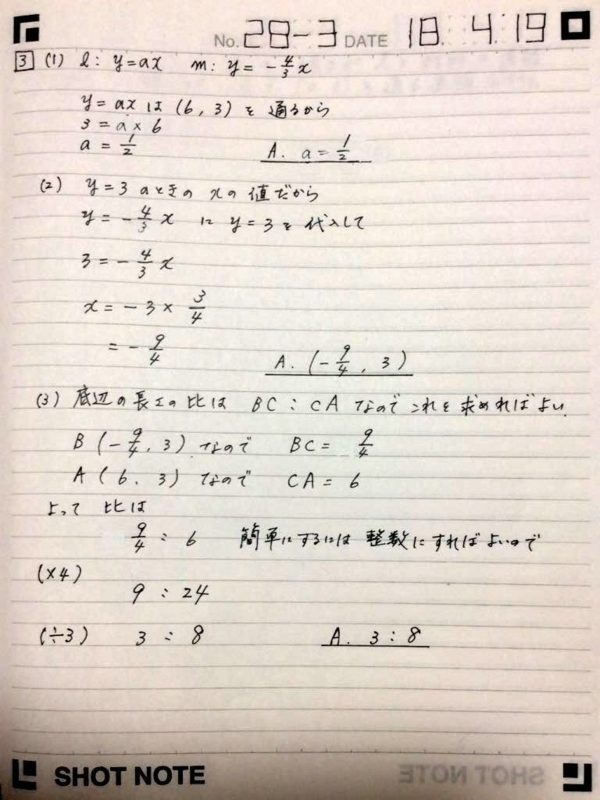 No. 28-3 DATE 18. 4. 19
3 (1) l: y=ax m: y=-4/3x
y=ax は (6, 3) を通るから
3=a×6
a=1/2 A. a=1/2
(2) y=3 のときの xの値だから
y=-4/3x に y=3を代入して
3=-4/3x
x=-3×3/4
=-9/4 A. (-9/4, 3)
(3) 底辺の長さの比は BC:CA なのでこれを求めればよい
B(-9/4, 3) なので BC=9/4
A(6, 3) なので CA=6
よって比は
9/4:6 簡単にするには整数にすればよいので
(×4)
9:24
(÷3) 3:8 A. 3:8
SHOT NOTE